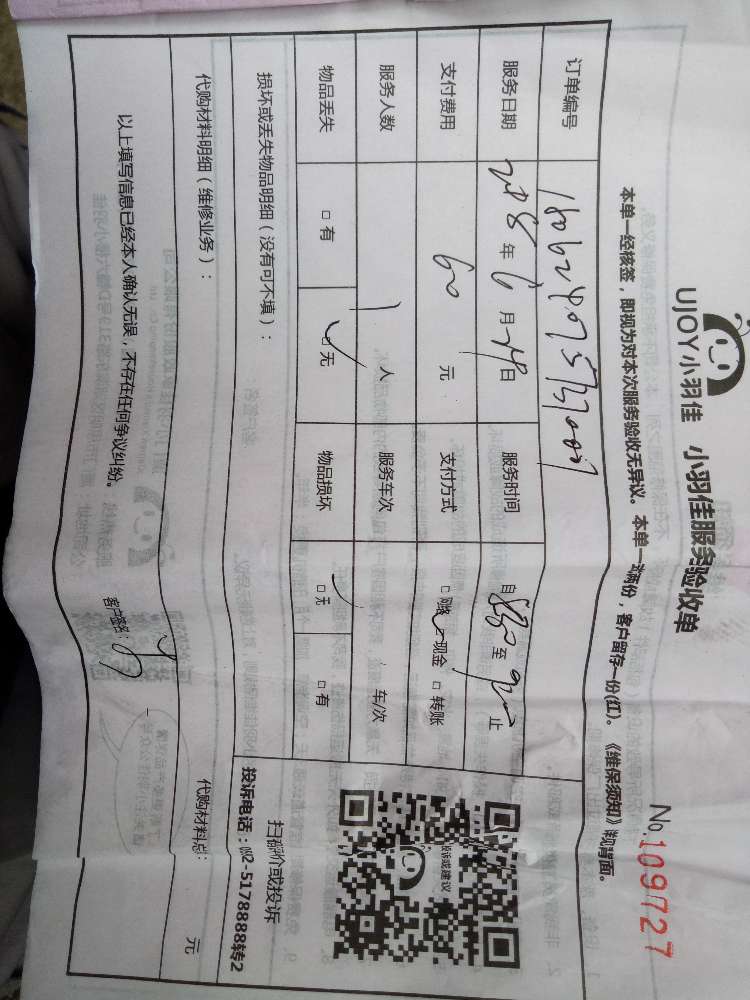 UJOY小羽佳 小羽佳服务验收单
No.109727
本单一经核签，即视为对本次服务验收无异议。本单一式两份，客户留存一份(红)。《维保须知》详见背面。
订单编号
服务日期 2018年6月24日 服务时间 自830至930止
支付费用 60元 支付方式 □网络 □现金 □转账
服务人数 1人 服务车次 车/次
物品丢失 □有 □无 物品损坏 □无 □有
损坏或丢失物品明细（没有可不填）：
扫码评价或投诉
投诉或建议
投诉电话：0592-5178888转2
代购材料明细（维修业务）：
代购材料总： 元
以上填写信息已经本人确认无误，不存在任何争议纠纷。
客户签名：